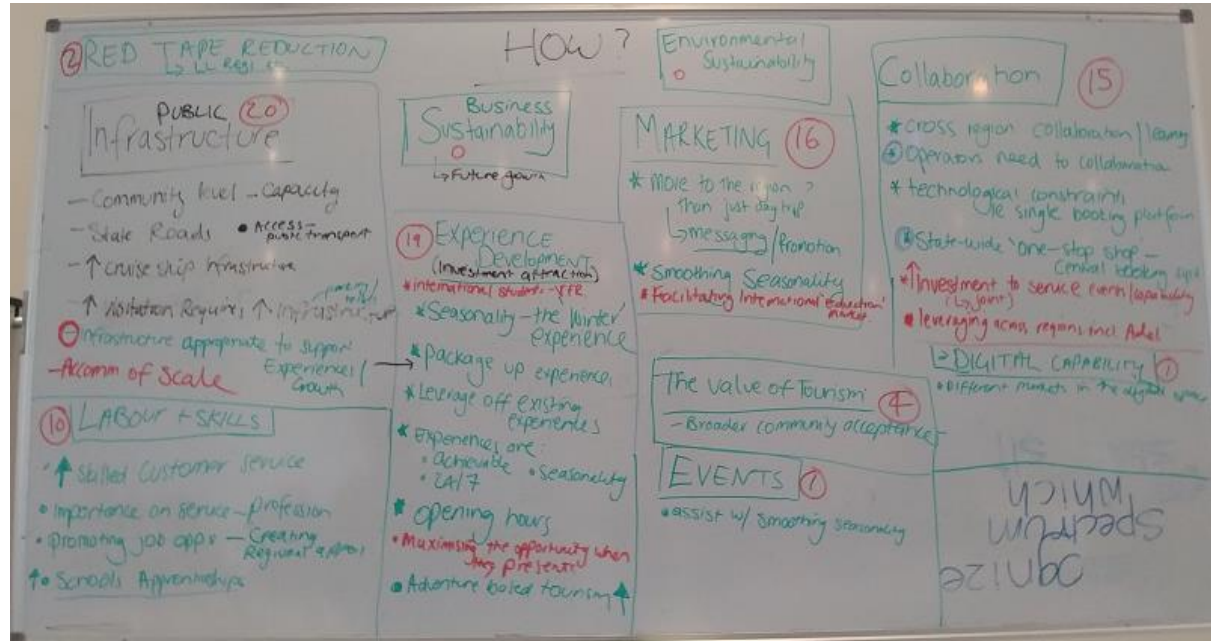 HOW?
② RED TAPE REDUCTION
PUBLIC 20
Infrastructure
- Community level - Capacity
- State Roads • Access -
public transport
- ↑ cruise ship infrastructure
↑ Visitation Requires ↑ Infrastructure
Infrastructure appropriate to support
Experiences/
Growth
- Accomm of Scale
10 LABOUR + SKILLS
↑ Skilled Customer Service
• Importance on service - profession
• promoting job opps - Creating
Regional
↑• Schools Apprenticeships
Business
Sustainability
0
↳ Future growth
19 Experience
Development
(Investment attraction)
* international students - VFR
* Seasonality - the Winter
experience
* package up experiences
* Leverage off existing
experiences
* Experiences are:
• achievable • Seasonality
• 24/7
* opening hours
• Maximising the opportunity when
they present
• Adventure based tourism ↑
Environmental
Sustainability
0
MARKETING 16
* More to the region
than just day trip
↳ messaging/Promotion
* Smoothing Seasonality
* Facilitating International education
The Value of Tourism 4
- Broader community acceptance -
EVENTS 1
• assist w/ smoothing seasonality
Collaboration 15
* cross region collaboration/
Operators need to collaboration
* technological constraints
ie single booking platform
State-wide 'one-stop shop -
Central booking
↑ Investment to service event/capability
(↳ joint)
• leveraging across regions incl Adel
DIGITAL CAPABILITY 1
• Different markets in the digital
Which
Spectrum